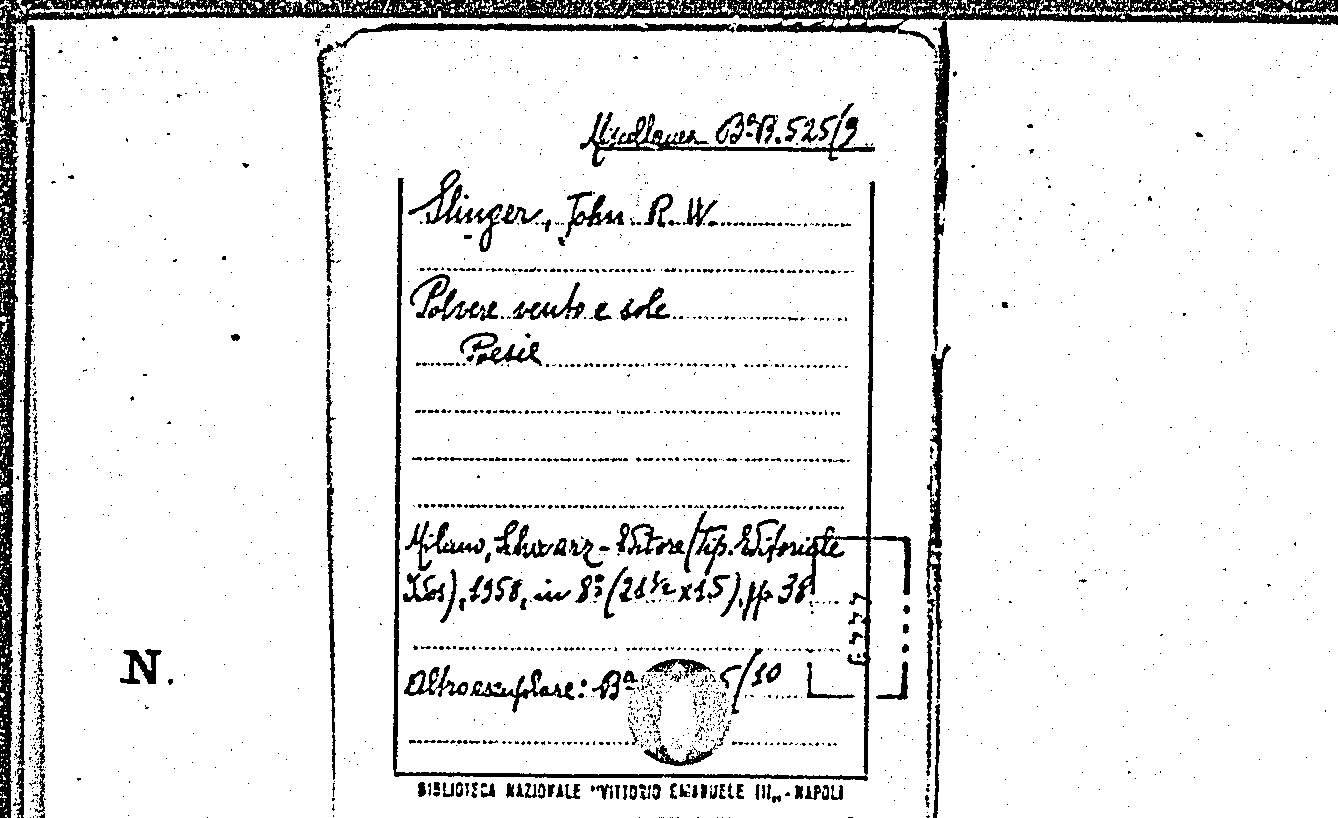 Miscellanea Bª B. 525/9
Slinger, John R. W.
Polvere vento e sole
Poesie
Milano, Schwarz - Editore (Tip. Editoriale
), 1958, in 8° (21 ½ x 15), pp. 38
N.
Altro esemplare: Bª 5/10
BIBLIOTECA NAZIONALE "VITTORIO EMANUELE III„ - NAPOLI